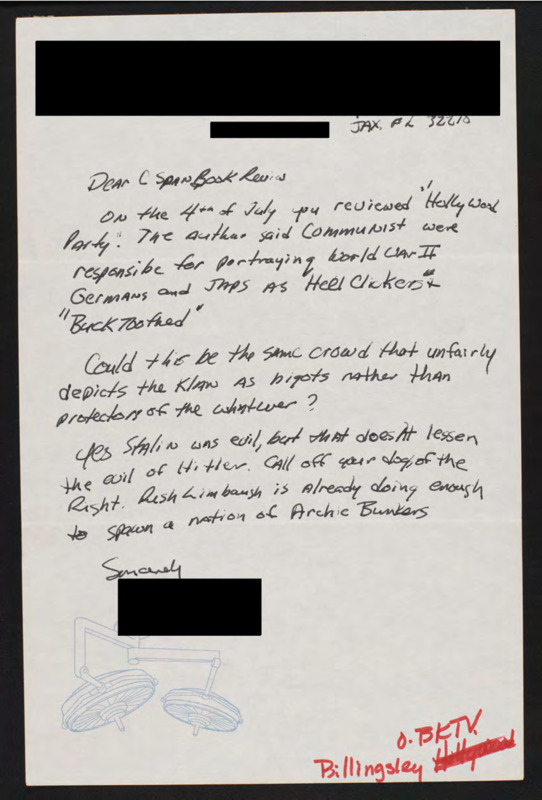 JAX, FL 32210
Dear C Span Book Review
On the 4th of July you reviewed "Hollywood
Party". The author said Communist were
responsible for portraying World War II
Germans and JAPS as Heel Clickers &
"Buck Toothed"
Could this be the same crowd that unfairly
depicts the Klan as bigots rather than
protectors of the whatever?
Yes Stalin was evil, but that doesn't lessen
the evil of Hitler. Call off your dogs of the
Right. Rush Limbaugh is already doing enough
to spawn a nation of Archie Bunkers
Sincerely
O. BKTV.
Billingsley